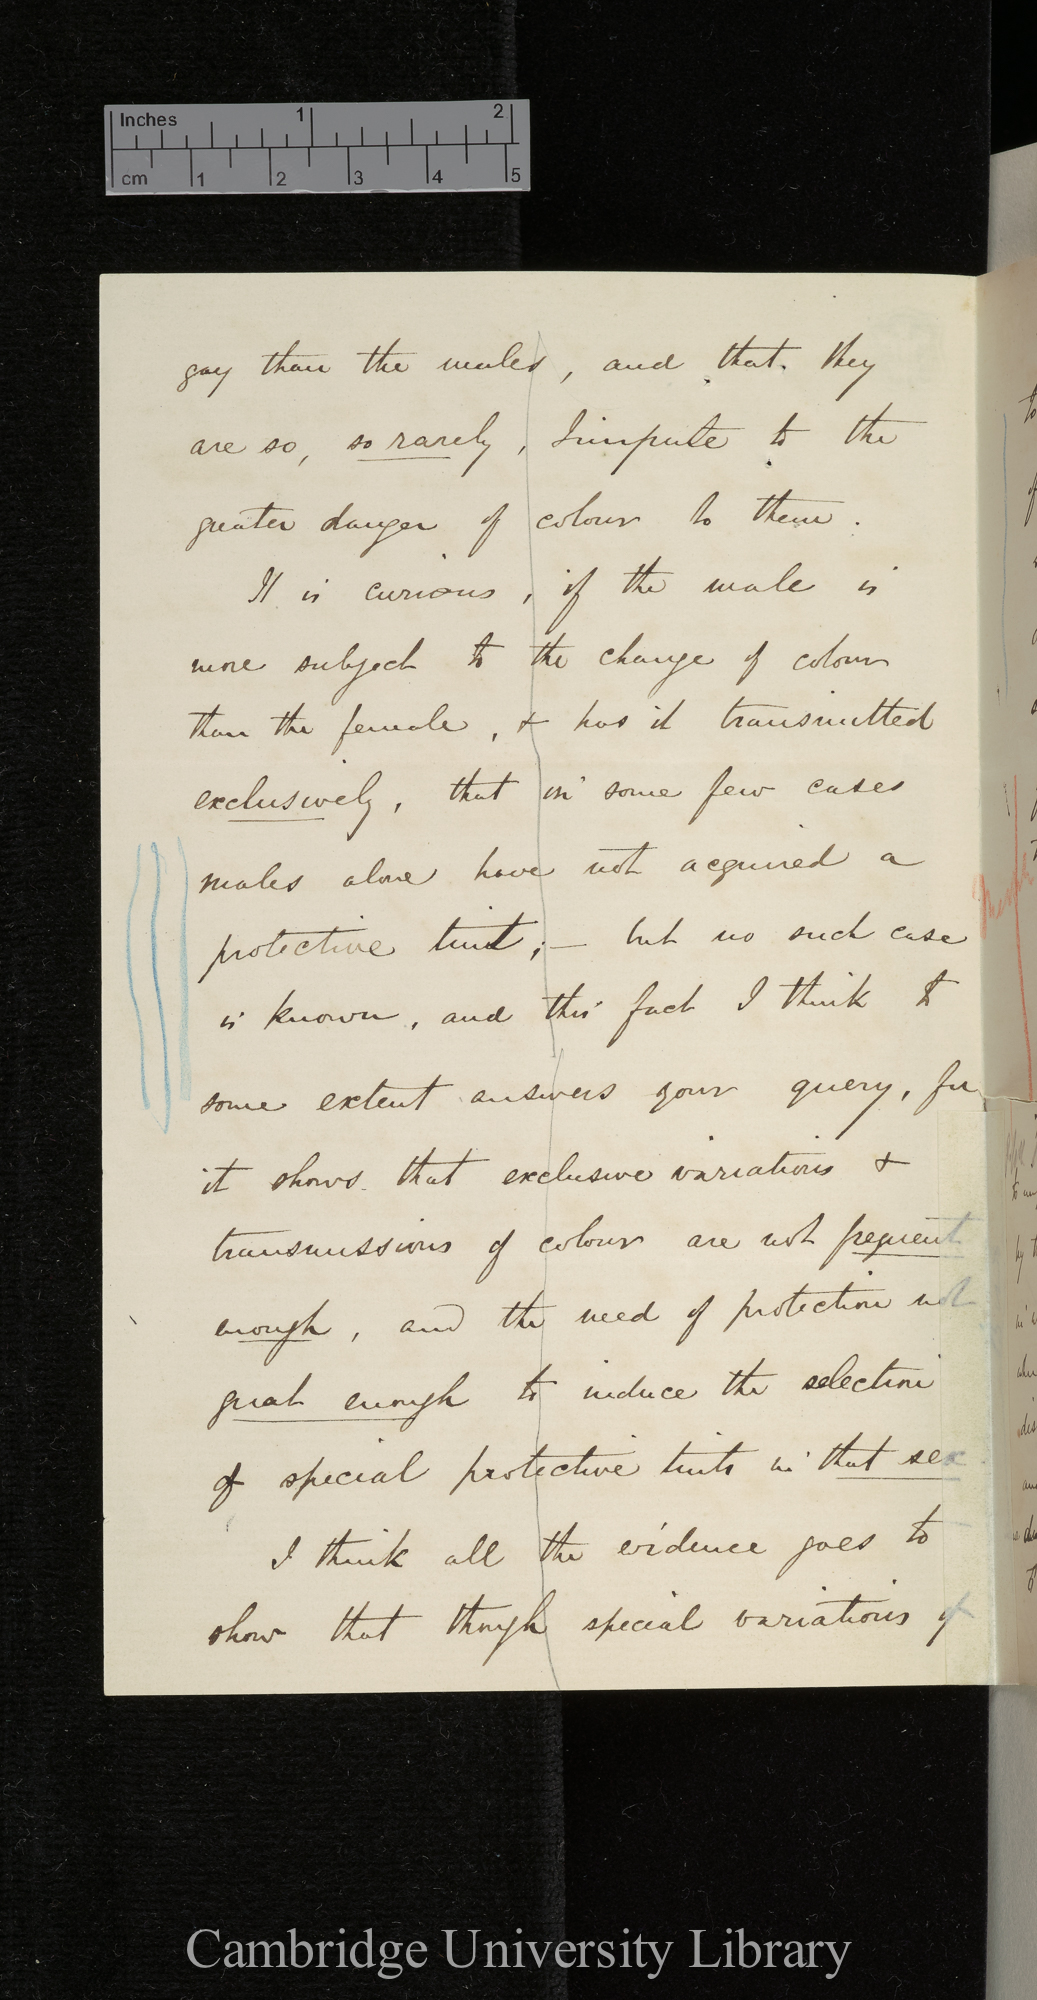 Inches 1 2
cm 1 2 3 4 5
gay than the males, and that they
are so, so rarely, I impute to the
greater danger of colour to them.
It is curious, if the male is
more subject to the change of colour
than the female, & has it transmitted
exclusively, that in some few cases
males alone have not acquired a
protective tint; — but no such case
is known, and this fact I think to
some extent answers your query, for
it shows that exclusive variations &
transmissions of colour are not frequent
enough, and the need of protection not
great enough to induce the selection
of special protective tints in that sex.
I think all the evidence goes to
show that though special variations of
Cambridge University Library